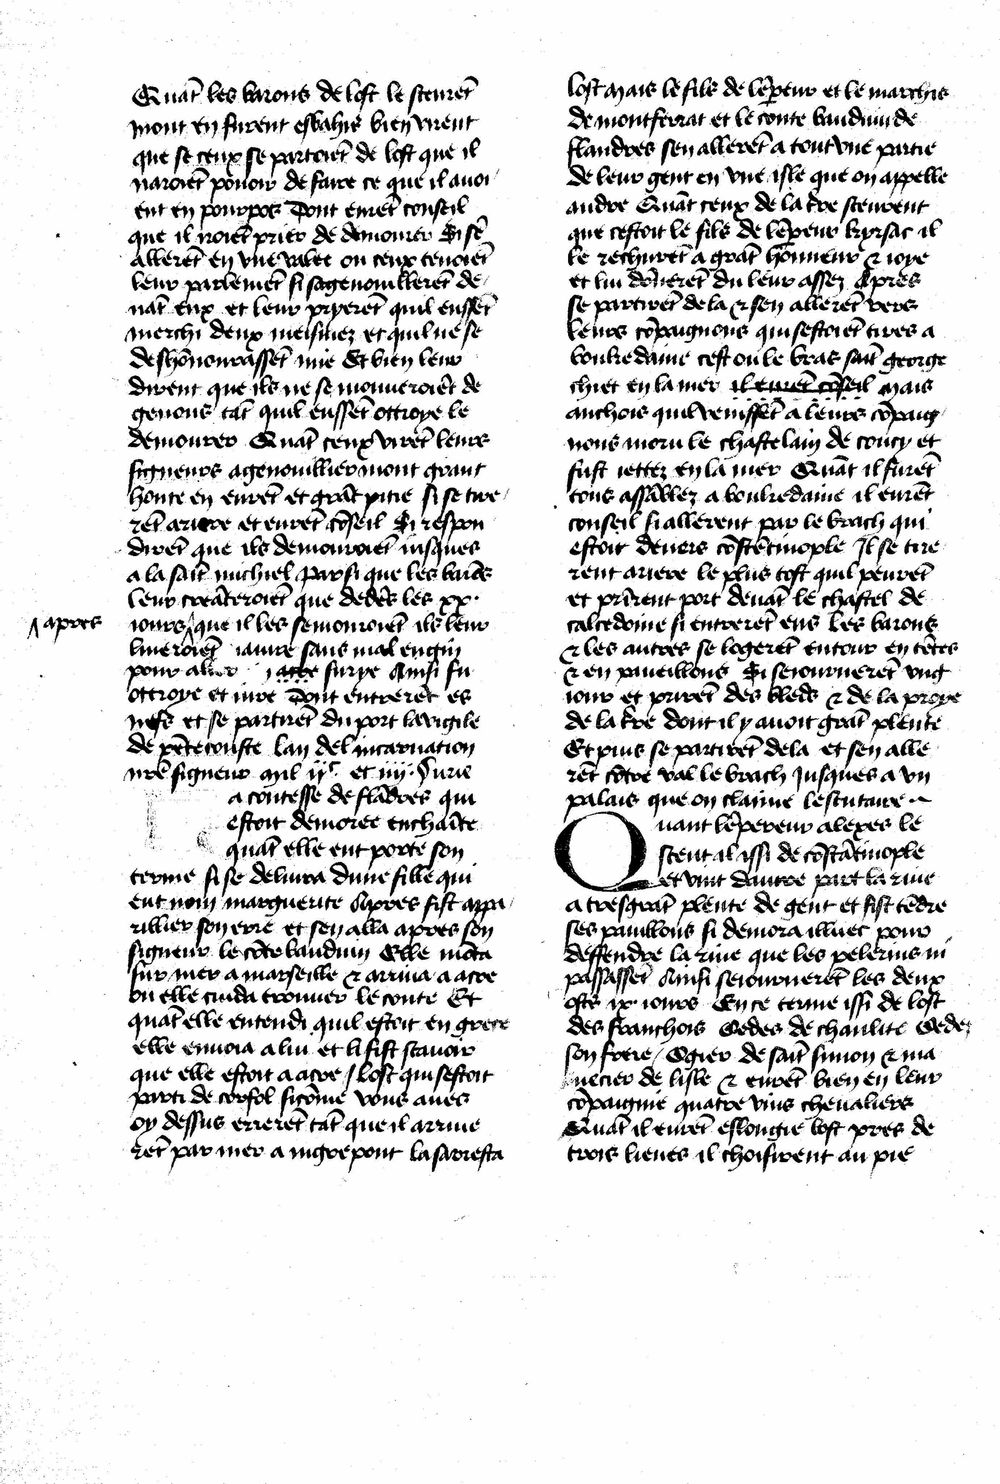 Quāt les barons de lost le sceurēt
mont en furent esbahis bien virent
que se ceux se partoiēt de lost que il
naroiēt pouoir de faire ce que il auoi
ent en pourpos Dont eurēt conseil
que il iroiēt prier de demourer Si sē
allerēt en vne valee ou ceux tenoiēt
leur parlemēt si sagenouillerēt de
uāt eux et leur pryerēt quil eussēt
merchi deux meismez et quil ne se
deshōnourassēt mie Et bien leur
dirent que ils ne se mouueroiēt de
genous tāt quil eussēt ottroye le
demourer Quāt ceux virēt leurs
signeurs agenouillier mont grant
honte en eurēt et grāt pitie si se tire
rēt ariere et eurēt cōseil Si respon
dirēt que ils demouroiēt iusques
a la saīt michiel par si que les barōs
leur creāteroiēt que dedēs les xx.
apres
iours que il les semouroiēt ils leur
liueroiēt nauire sans mal engin
pour aller surye Ainsi fu
ottroye et iure Dont entrerēt es
nefs et se partirēt du port la vigile
de pētecouste lan del incarnation
nrē signeur mil ijc et iiij. Surie
a contesse de flādres qui
estoit demoree enchaīte
quāt elle eut porte son
terme si se deliura dune fille qui
eut nom marguerite Apres fist appa
rillier son erre et sen alla apres son
signeur le cōte bauduin Elle mōta
sur mer a marseille & arriua a acre
ou elle cuida trouuer le conte Et
quāt elle entendi quil estoit en grece
elle enuoia a lui et li fist scauoir
que elle estoit a acre lost qui sestoit
parti de corfol sicōme vous aues
oy dessus errerēt tāt que il arriue
rēt par mer a nigrepont la saresta
lost mais le fils de lēpeur et le marchis
de montferrat et le conte bauduin de
flandres sen allerēt a tout vne partie
de leur gent en vne isle que on appelle
andre Quāt ceux de la tre sceurent
que cestoit le fils de lēpeur kyrsac il
le rechurēt a grāt hōnneur & ioye
et lui dōnerēt du leur assez Apres
se partirēt de la & sen allerēt vers
leurs cōpaignons qui sestoiēt tires a
boukedame cest ou le bras saīt george
chiet en la mer il eurēt cōseil mais
anchois quil venissēt a leurs cōpaig
nons moru le chastelain de coucy et
fust iettez en la mer Quāt il furēt
tous assāblez a boukedame il eurēt
conseil si allerent par le brach qui
estoit deuers cōstētinople Il se tire
rent ariere le plus tost quil peurēt
et prīrent port deuāt le chastel de
calcedoine si entrerēt ens les barons
& les autres se logerēt entour en tētes
& en paueillons Si seiournerēt vng
iour et prirēt des bleds & de la proye
de la tre dont il y auoit grāt plente
Et puis se partirēt de la et sen alle
rēt cōtre val le brach Iusques a vn
palais que on claime lescutaire
Quant lēpereur alexes le
sceut il issi de cōstātinople
et vint dautre part la riue
a tresgrāt plente de gent et fist tēdre
ses pauillons si demora illuec pour
deffendre la riue que les pelerins ni
passassēt Ainsi seiournerēt les deux
osts ix iours En ce terme issi de lost
des franchois Oedes de chanlite Oedes
son frere Ogier de saīt simon & ma
necier de lisle & eurēt bien en leur
cōpaignie quatre vins cheualiers
Quāt il eurēt eslongie lost pres de
trois lieues il choisirent au pie